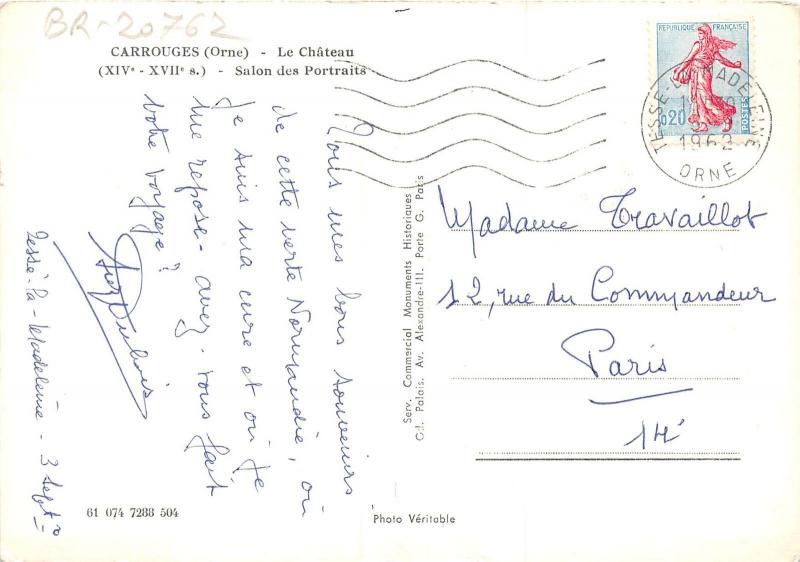 BR-20762
CARROUGES (Orne) - Le Château
(XIVe - XVIIe s.) - Salon des Portraits
Tous mes bons souvenirs
de cette verte Normandie, où
je suis ma cure et où je
me repose - avez-vous fait
votre voyage?
Dubois
Tessé-la-Madeleine - 3 Sept
61 074 7288 504
Serv. Commercial Monuments Historiques
Gd. Palais. Av. Alexandre-III. Porte G. Paris
Photo Véritable
RÉPUBLIQUE FRANÇAISE
0,20
POSTES
TESSE-LA-MADELEINE
1962
ORNE
Madame Travaillot
12, rue du Commandeur
Paris
14e